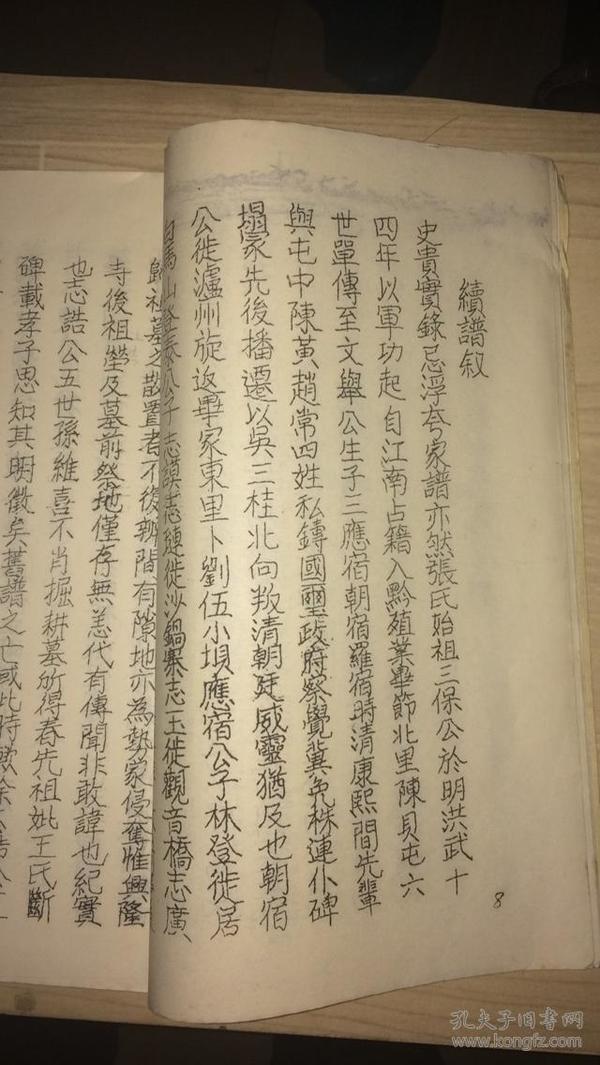 續譜叙
史貴實錄忌浮夸家譜亦然張氏始祖三保公於明洪武十
四年以軍功起自江南占籍入黔殖業畢節北里陳貝屯六
世單傳至文舉公生子三應宿朝宿羅宿時清康熙間先輩
與屯中陳黃趙常四姓私鑄國璽政府察覺冀免株連仆碑
塌冢先後播遷以吳三桂北向叛清朝廷威靈猶及也朝宿
公徙瀘州旋返畢家東里卜劉伍小埧應宿公子林登徙居
白馬山登泰公子志謨志璉徙沙鍋寨志玉徙觀音橋志廣
歸祖墓之散置者不復辨間有隙地亦為勢家侵奪惟興隆
寺後祖塋及墓前祭地僅存無恙代有傳聞非敢諱也紀實
也志誥公五世孫維喜不肖掘耕墓所得春先祖妣王氏斷
碑載孝子思知其明徵矣舊譜之亡或此時歟
8
孔夫子旧书网
www.kongfz.com